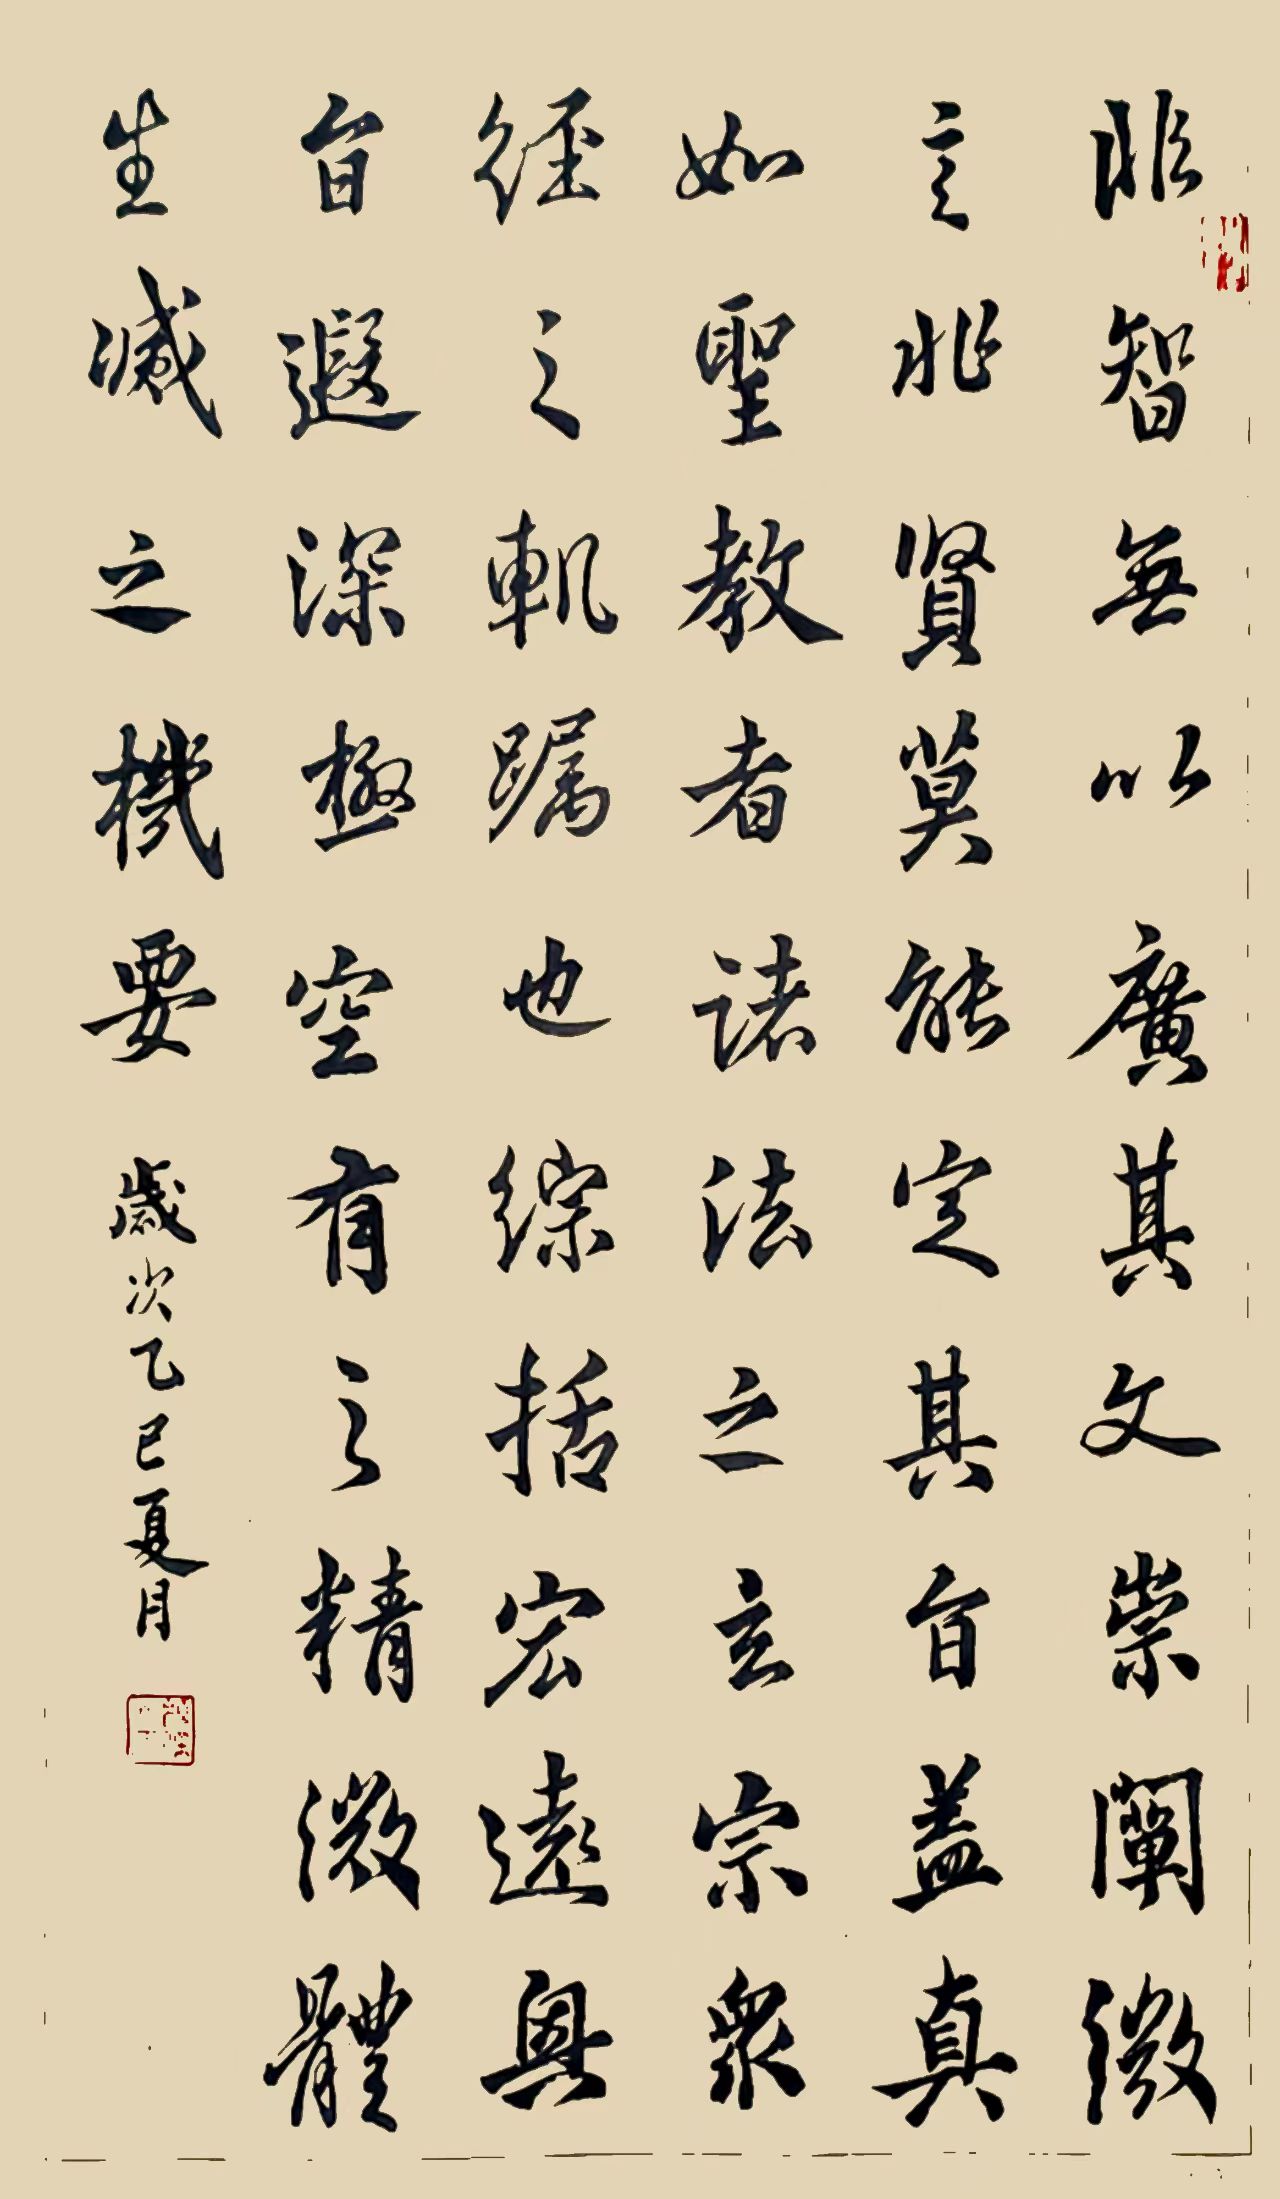 非智無以廣其文崇闡微
言非賢莫能定其旨蓋真
如聖教者諸法之玄宗衆
經之軌躅也綜括宏遠奧
旨遐深極空有之精微體
生滅之機要
歲次乙巳夏月